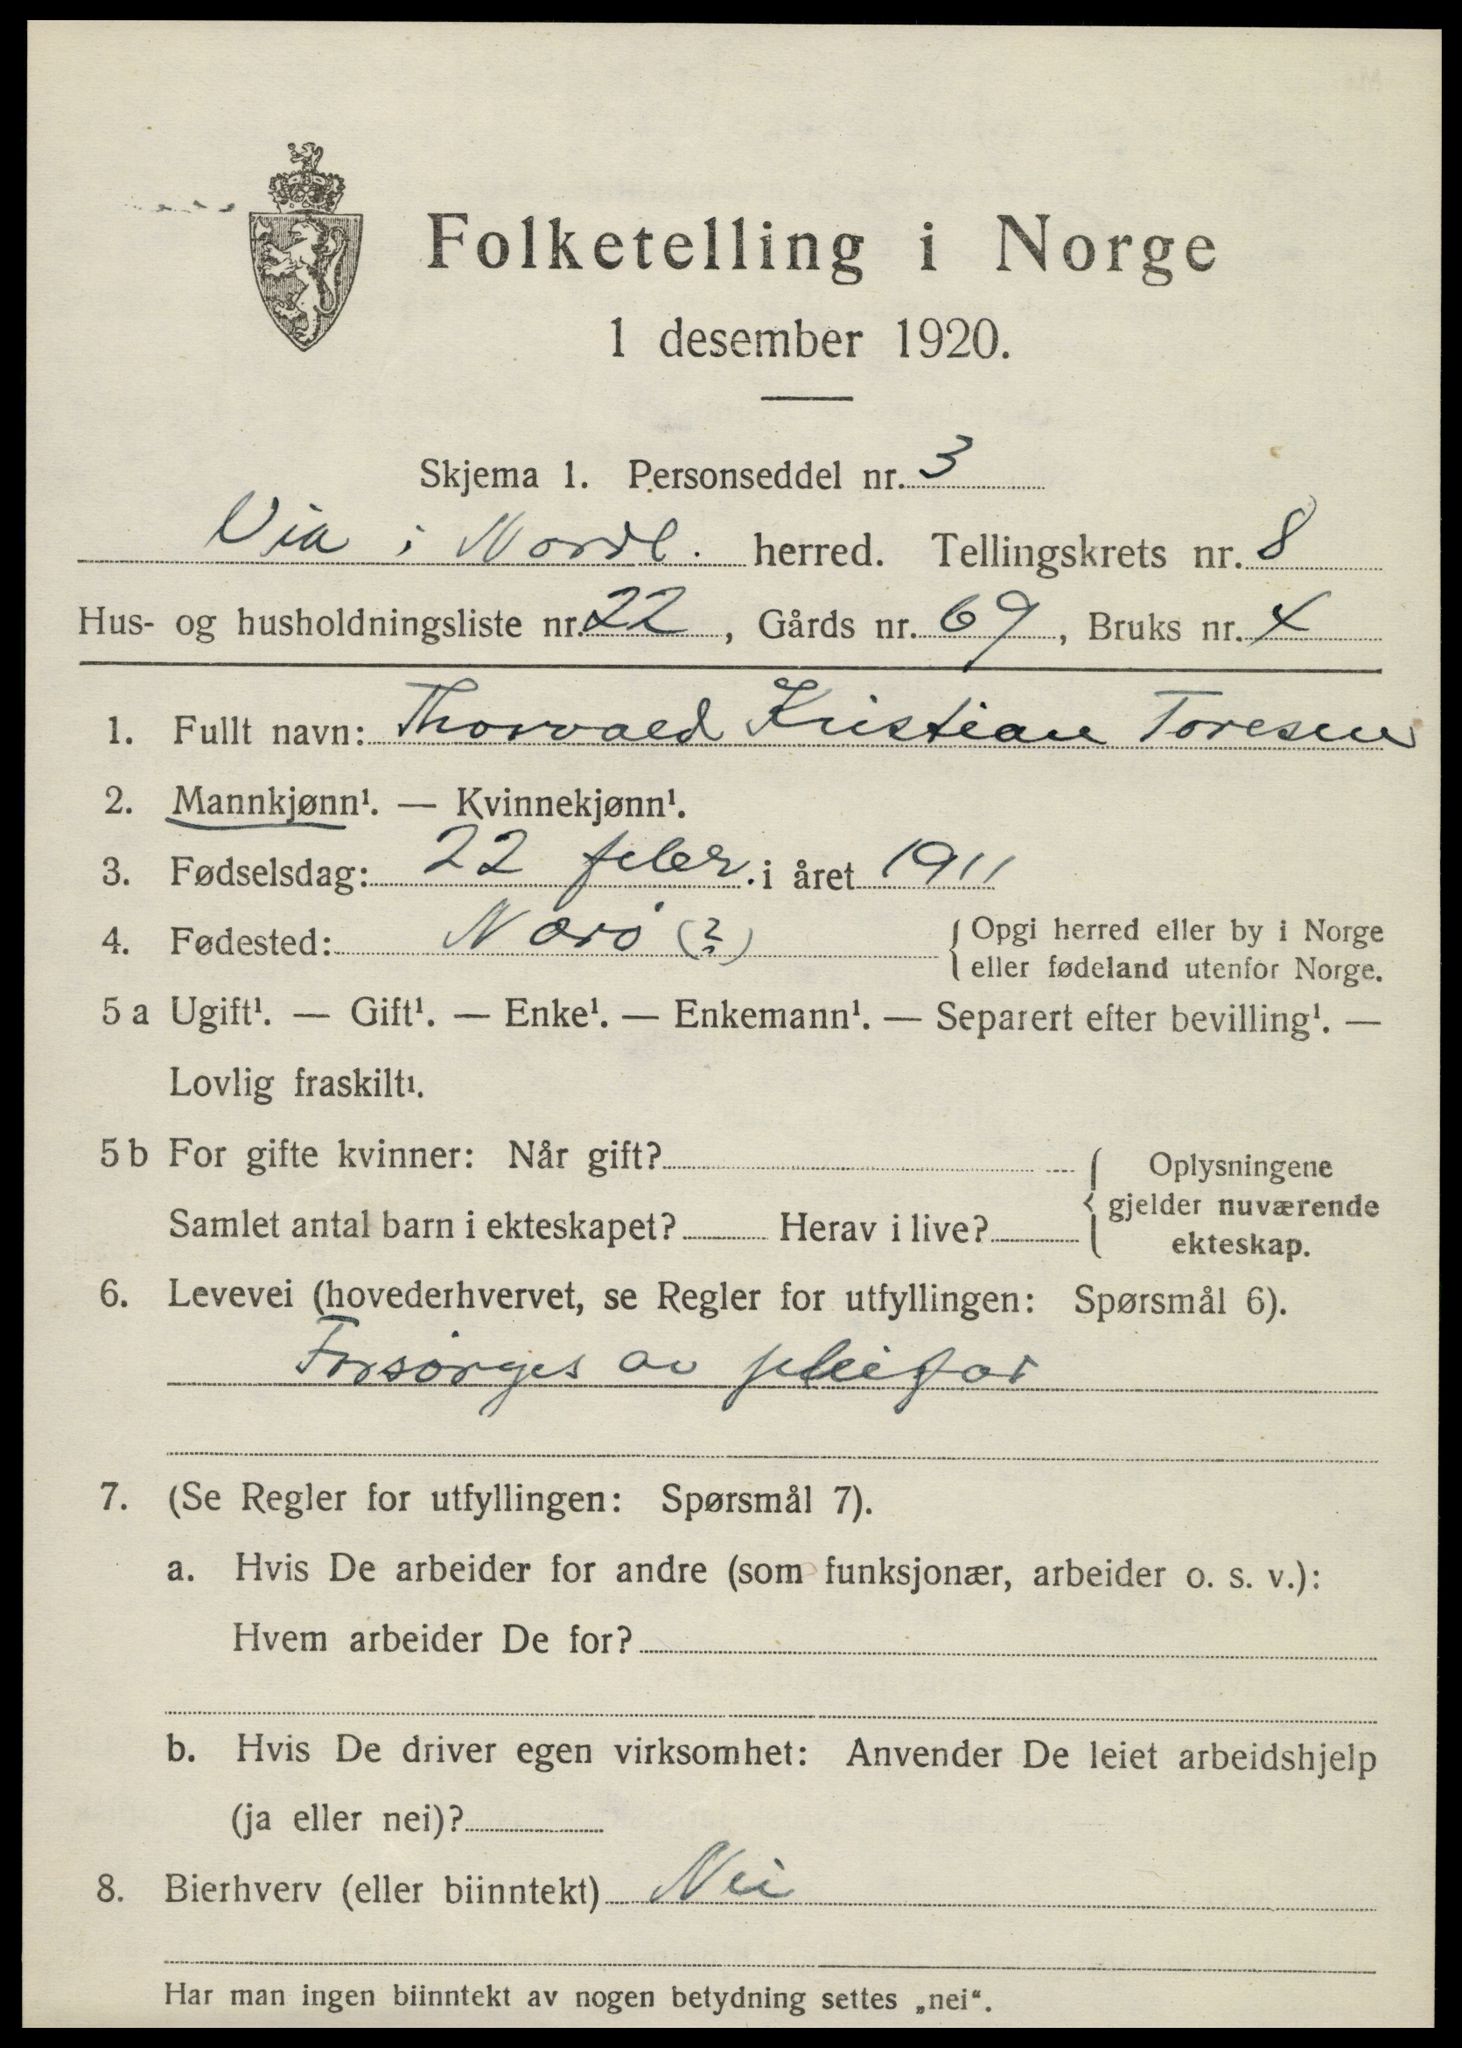 Folketelling i Norge
1 desember 1920.
Skjema 1. Personseddel nr. 3
Via i Nordl. herred. Tellingskrets nr. 8
Hus- og husholdningsliste nr. 22, Gårds nr. 69, Bruks nr. 4
1. Fullt navn: Thorvald Kristian Toresen
2. Mannkjønn¹. — Kvinnekjønn¹.
3. Fødselsdag: 22 febr. i året 1911
4. Fødested: Nærø (?) { Opgi herred eller by i Norge
eller fødeland utenfor Norge.
5 a Ugift¹. — Gift¹. — Enke¹. — Enkemann¹. — Separert efter bevilling¹. —
Lovlig fraskilt¹.
5 b For gifte kvinner: Når gift? { Oplysningene
gjelder nuværende
Samlet antal barn i ekteskapet? Herav i live?
ekteskap.
6. Levevei (hovederhvervet, se Regler for utfyllingen: Spørsmål 6).
Forsørges av pleifar
7. (Se Regler for utfyllingen: Spørsmål 7).
a. Hvis De arbeider for andre (som funksjonær, arbeider o. s. v.):
Hvem arbeider De for?
b. Hvis De driver egen virksomhet: Anvender De leiet arbeidshjelp
(ja eller nei)?
8. Bierhverv (eller biinntekt) Nei
Har man ingen biinntekt av nogen betydning settes „nei“.